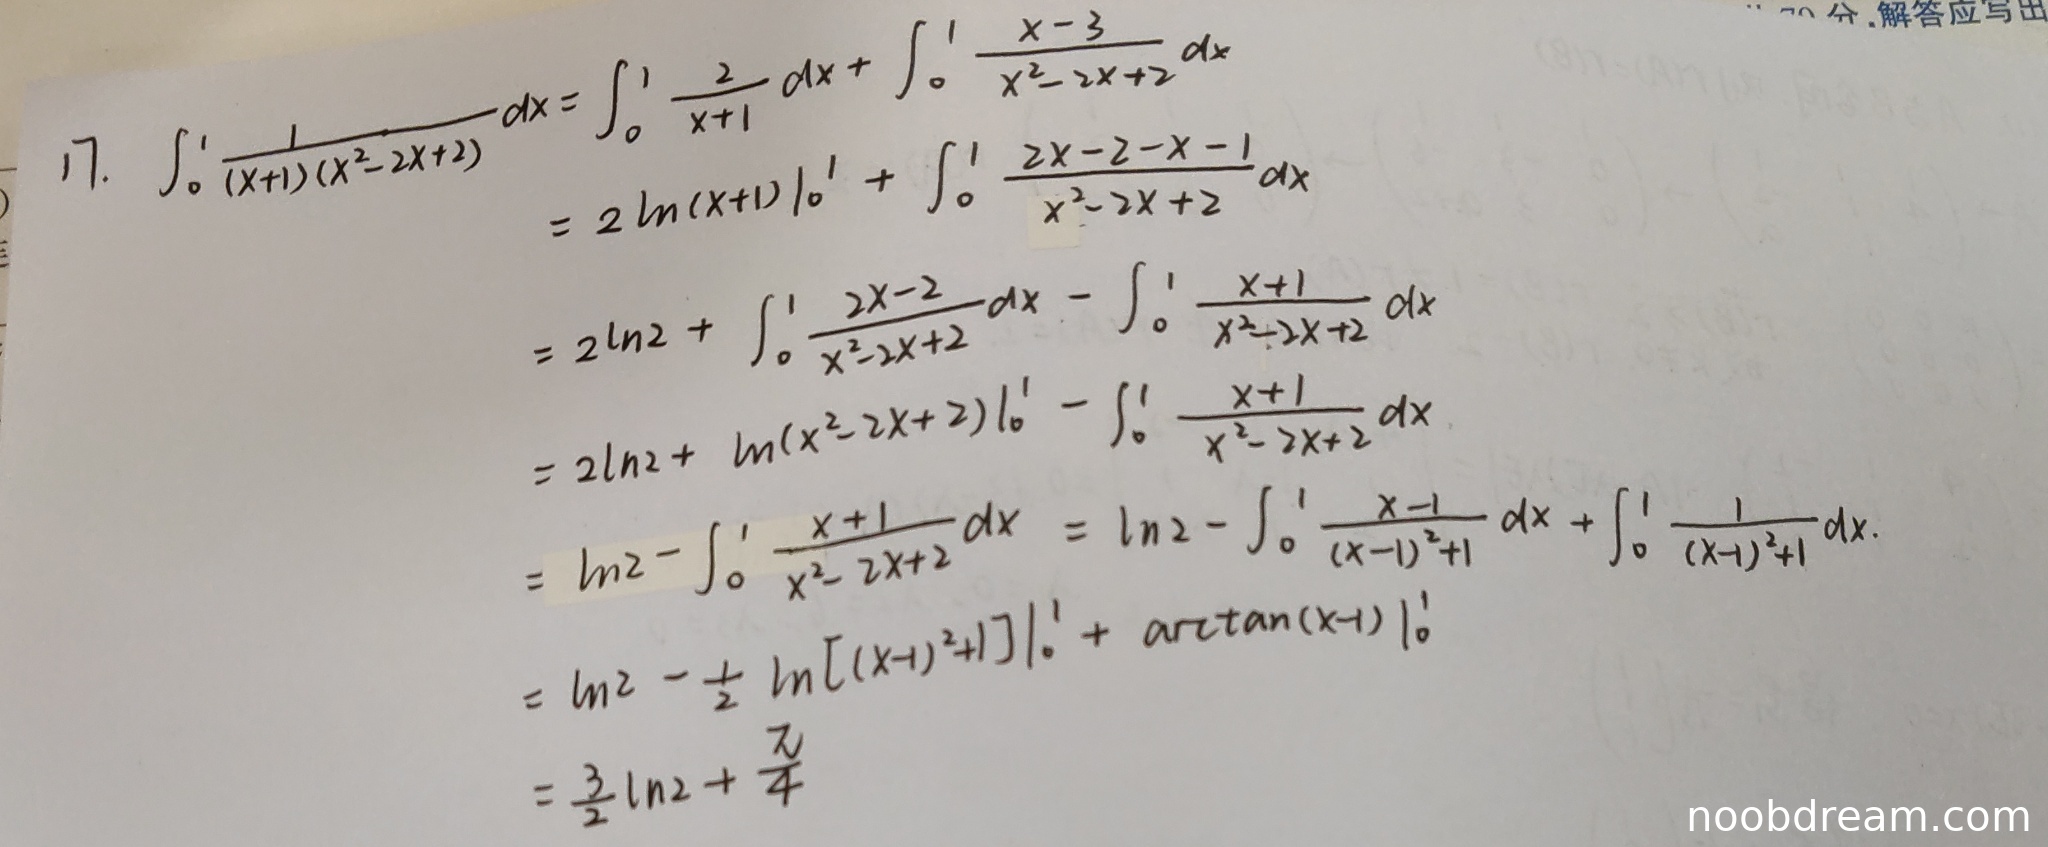 分.解答应写出
17. ∫₀¹ 1/((x+1)(x²-2x+2)) dx = ∫₀¹ 2/(x+1) dx + ∫₀¹ (x-3)/(x²-2x+2) dx
= 2ln(x+1)|₀¹ + ∫₀¹ (2x-2-x-1)/(x²-2x+2) dx
= 2ln2 + ∫₀¹ (2x-2)/(x²-2x+2) dx - ∫₀¹ (x+1)/(x²-2x+2) dx
= 2ln2 + ln(x²-2x+2)|₀¹ - ∫₀¹ (x+1)/(x²-2x+2) dx
= ln2 - ∫₀¹ (x+1)/(x²-2x+2) dx = ln2 - ∫₀¹ (x-1)/((x-1)²+1) dx + ∫₀¹ 1/((x-1)²+1) dx.
= ln2 - 1/2 ln[(x-1)²+1]|₀¹ + arctan(x-1)|₀¹
= 3/2 ln2 + π/4
noobdream.com